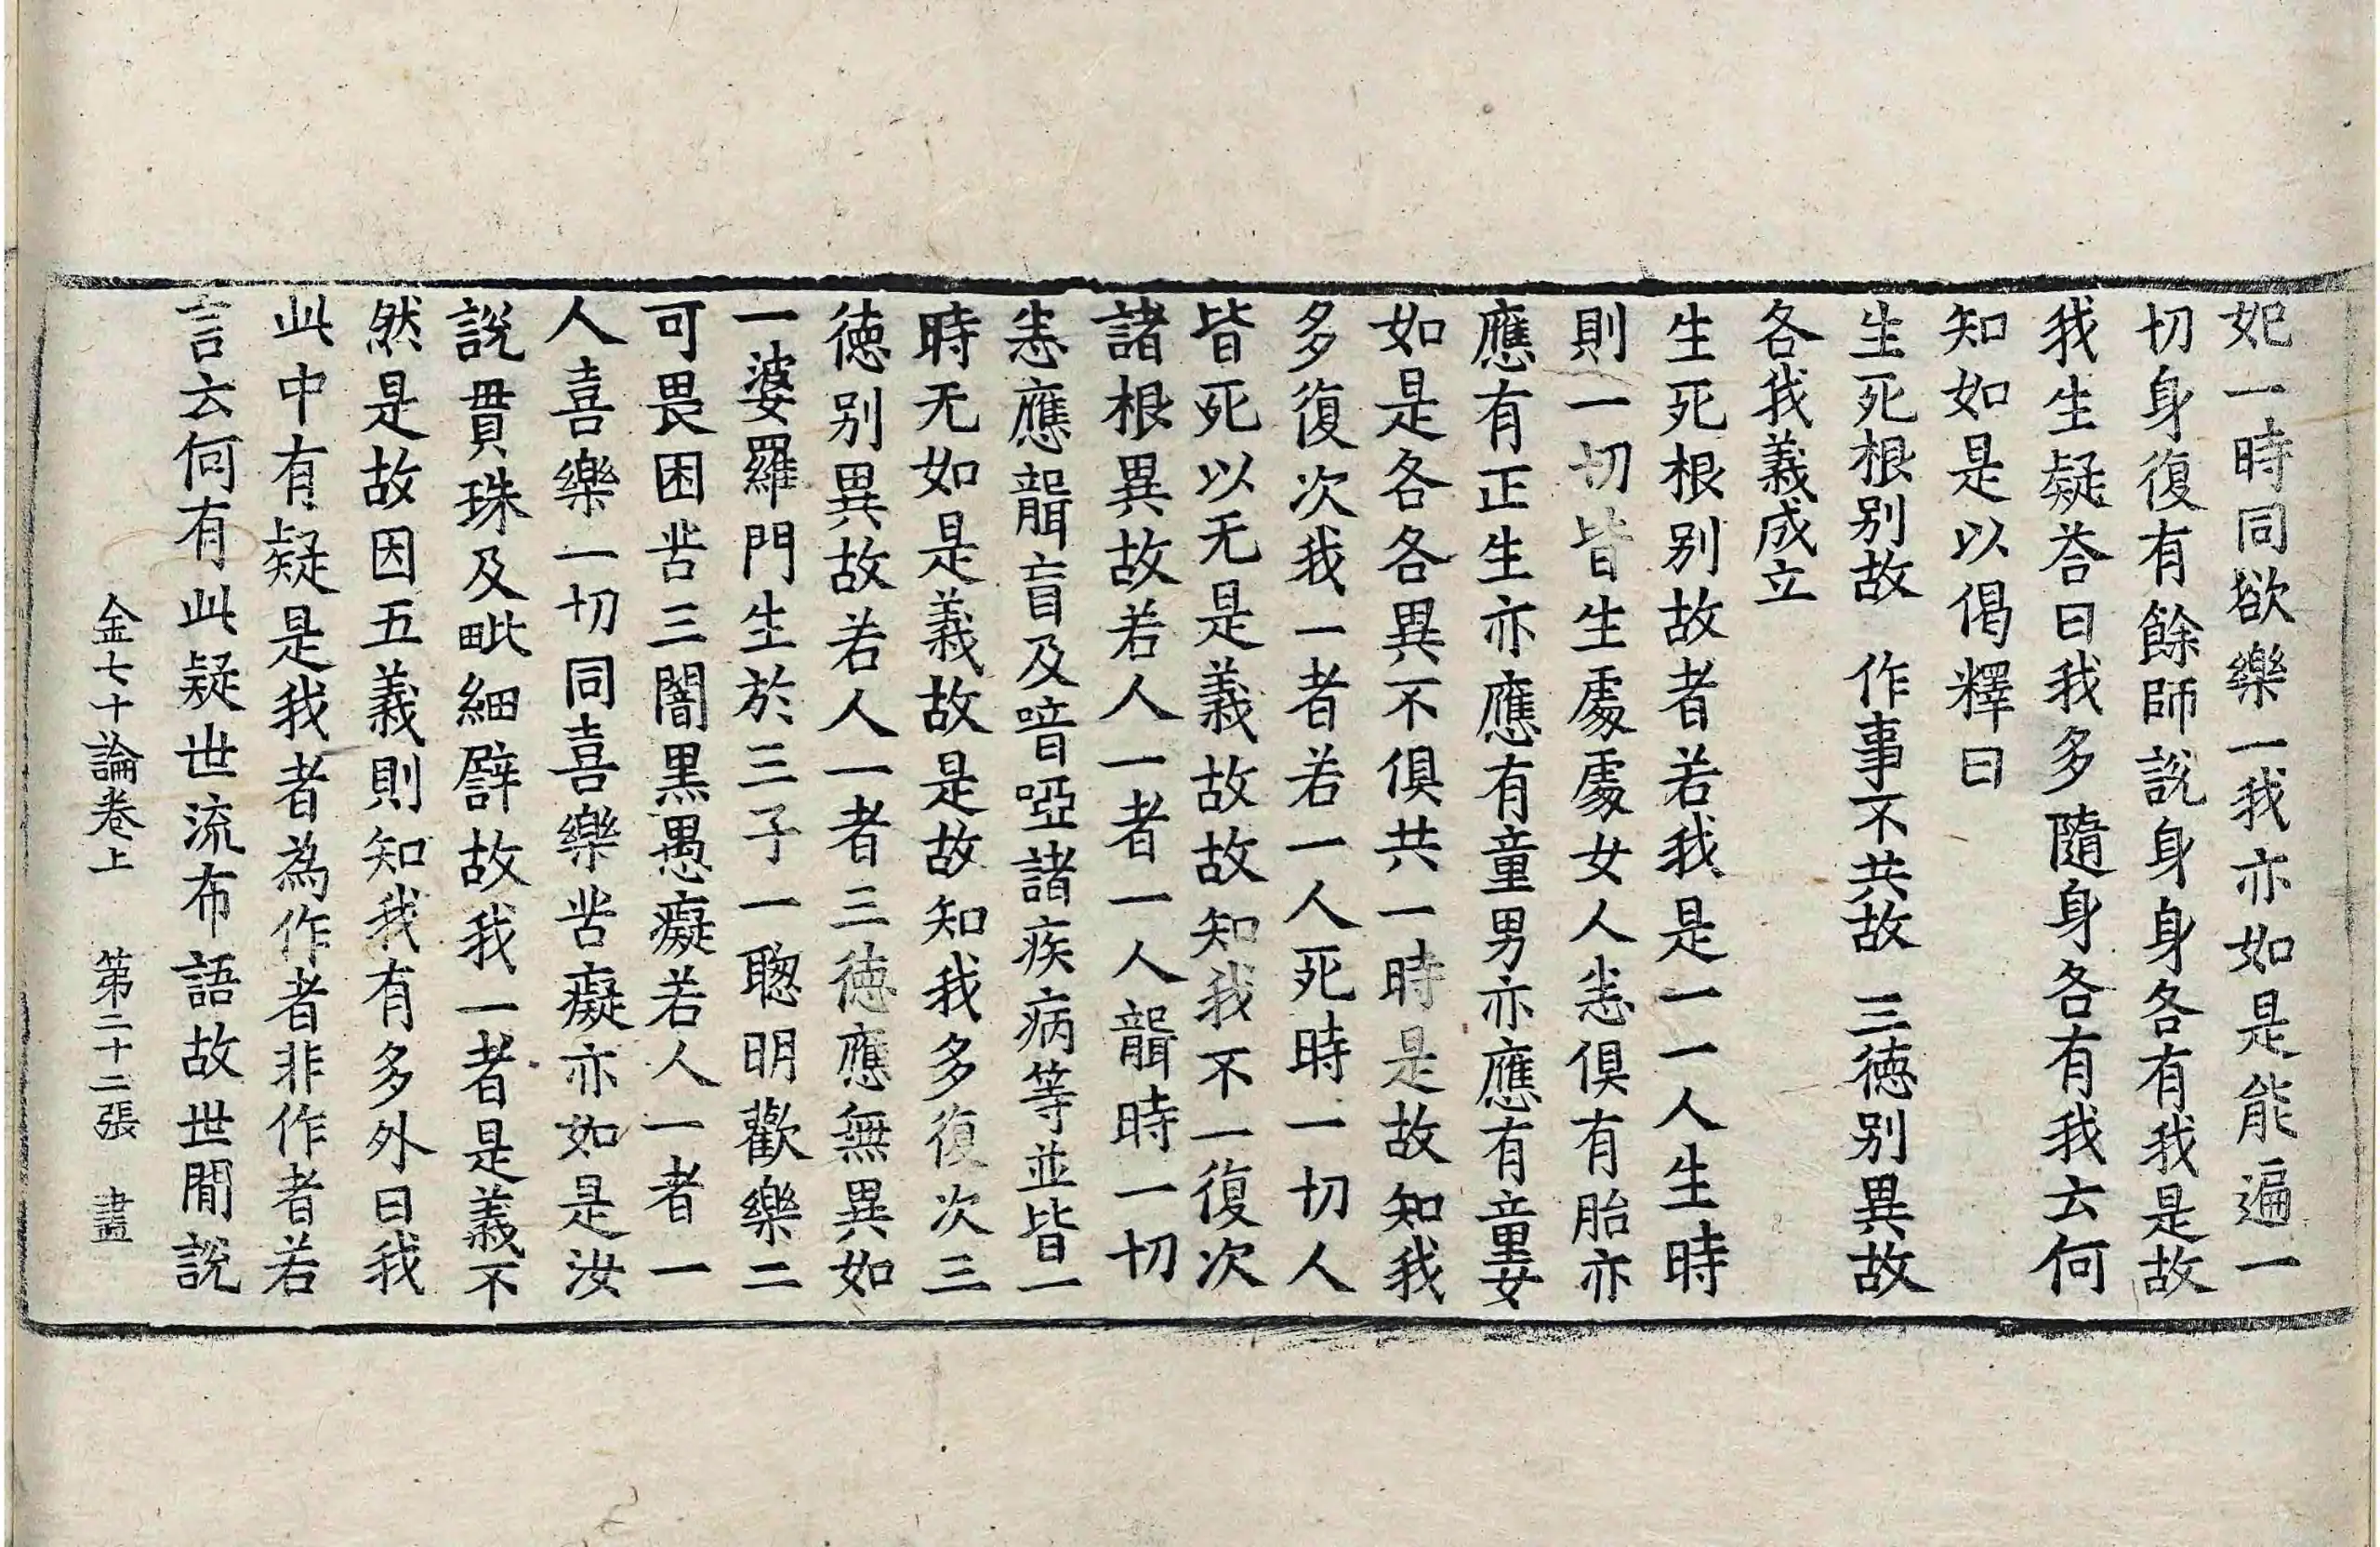 妃一時同欲樂一我亦如是能遍一
切身復有餘師說身身各有我是故
我生疑荅曰我多隨身各有我云何
知如是以偈釋曰
生死根别故　作事不共故　三徳别異故
各我義成立
生死根别故者若我是一一人生時
則一切皆生處處女人恚俱有胎亦
應有正生亦應有童男亦應有童女
如是各各異不俱共一時是故知我
多復次我一者若一人死時一切人
皆死以无是義故故知我不一復次
諸根異故若人一者一人聾時一切
恚應聾盲及喑啞諸疾病等並皆一
時无如是義故是故知我多復次三
徳别異故若人一者三徳應無異如
一婆羅門生於三子一聦明歡樂二
可畏困苦三闇黒愚癡若人一者一
人喜樂一切同喜樂苦癡亦如是汝
說貫珠及毗細辟故我一者是義不
然是故因五義則知我有多外曰我
此中有疑是我者為作者非作者若
言云何有此疑世流布語故世間說
金七十論卷上　第二十二張　畫